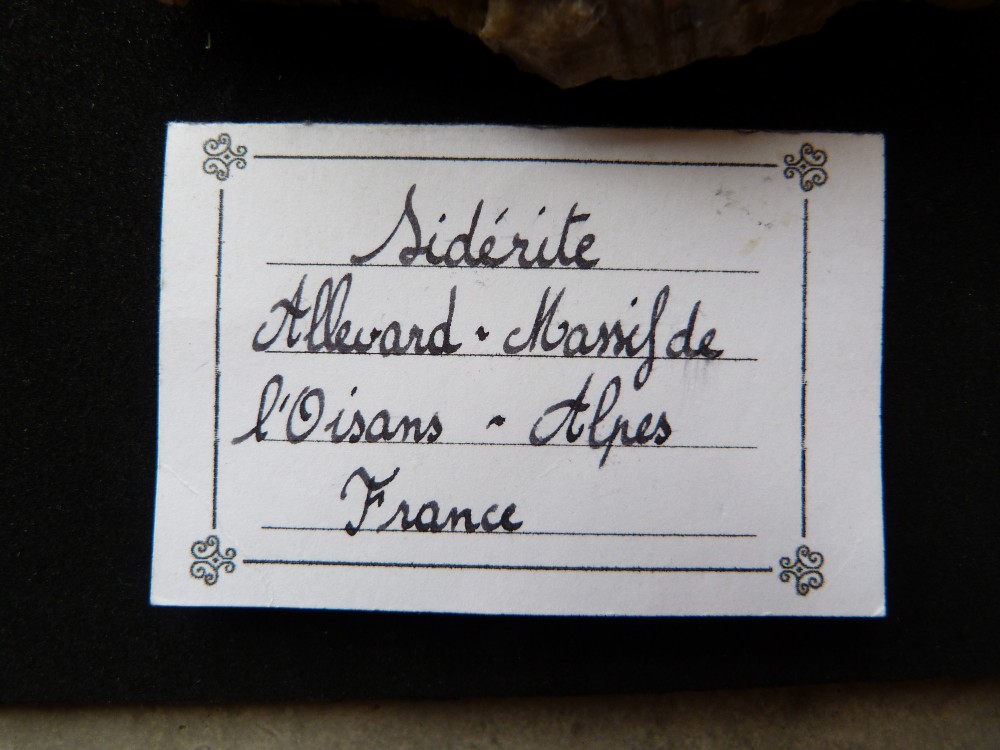 Sidérite
Allevard - Massif de
l'Oisans - Alpes
France